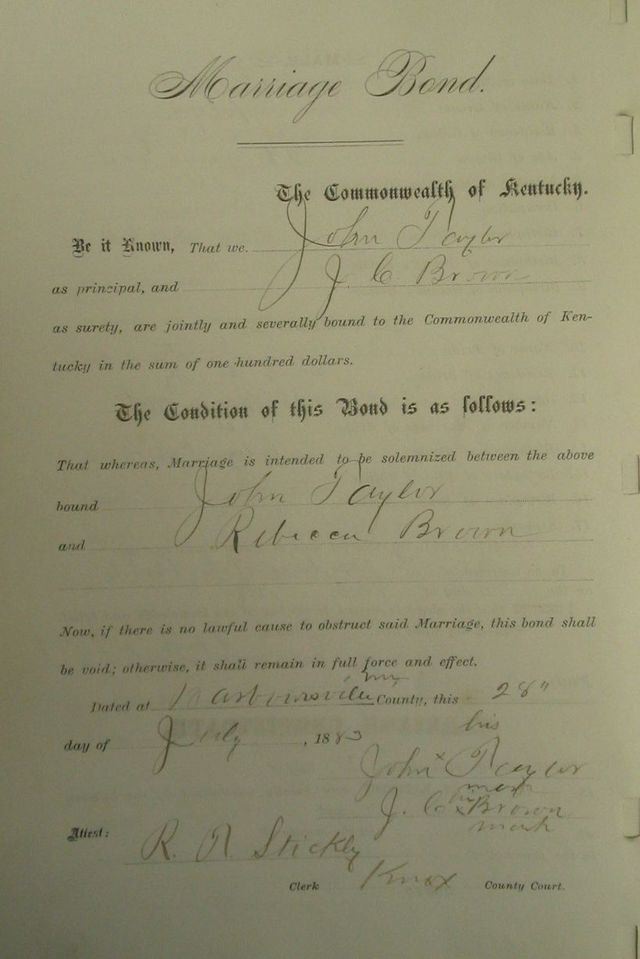 Marriage Bond.
The Commonwealth of Kentucky.
Be it Known, That we John Taylor
as principal, and J. C Brown
as surety, are jointly and severally bound to the Commonwealth of Ken-
tucky in the sum of one hundred dollars.
The Condition of this Bond is as follows:
That whereas, Marriage is intended to be solemnized between the above
bound John Taylor
and Rebecca Brown
Now, if there is no lawful cause to obstruct said Marriage, this bond shall
be void; otherwise, it shall remain in full force and effect.
Dated at Barbourville County, this 28"
day of July, 1883
his
John x Taylor
mark
J. C. x Brown
mark
Attest: R. R. Stickly
Clerk Knox County Court.